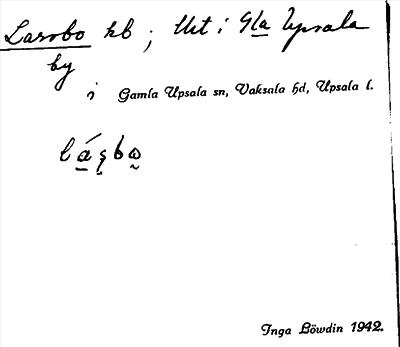 Lassbo kb; Utt i Gla Upsala
by
i Gamla Upsala sn, Vaksala hd, Upsala l.
Inga Löwdin 1942.